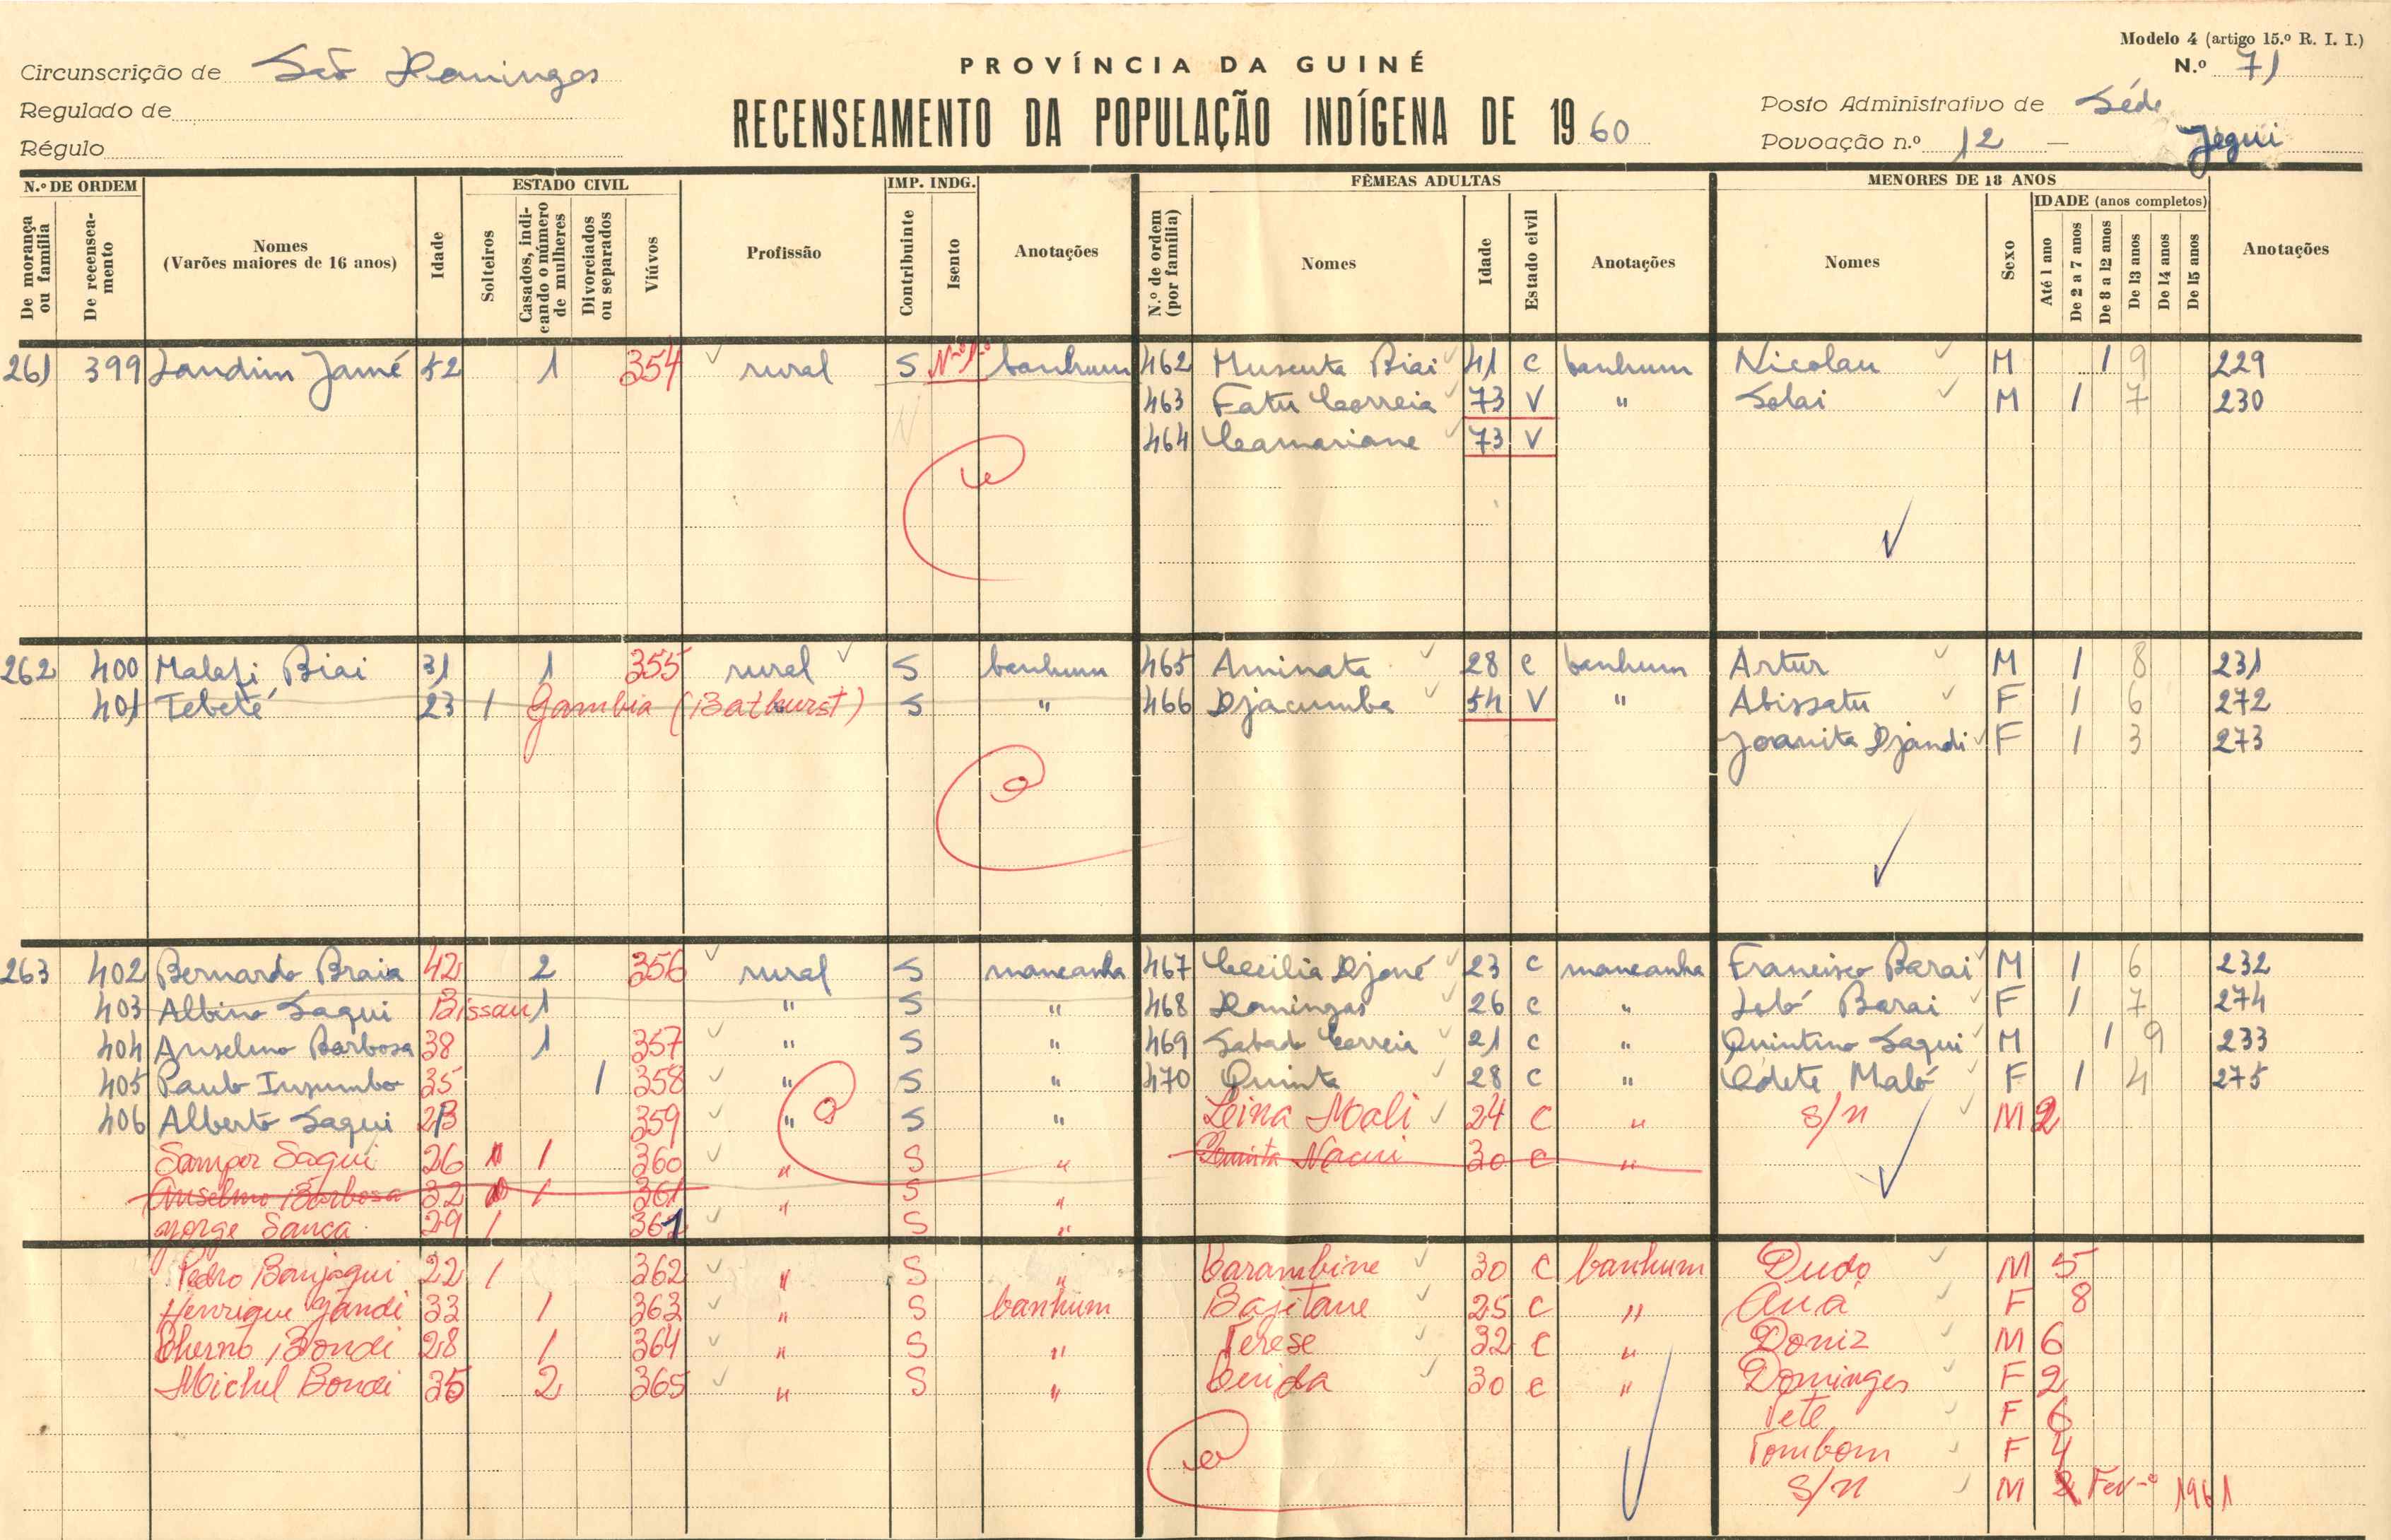 Modelo 4 (artigo 15.º R. I. I.)
Circunscrição de São Domingos
PROVÍNCIA DA GUINÉ
N.º 71
Regulado de
RECENSEAMENTO DA POPULAÇÃO INDÍGENA DE 1960
Posto Administrativo de Séde
Régulo
Povoação n.º 12 — Jegui
N.º DE ORDEM
ESTADO CIVIL
IMP. INDG.
FÊMEAS ADULTAS
MENORES DE 18 ANOS
De morança ou família
De recenseamento
Nomes (Varões maiores de 16 anos)
Idade
Solteiros
Casados, indicando o número de mulheres
Divorciados ou separados
Viúvos
Profissão
Contribuinte
Isento
Anotações
N.º de ordem (por família)
Nomes
Idade
Estado civil
Anotações
Nomes
Sexo
IDADE (anos completos)
Até 1 ano
De 2 a 7 anos
De 8 a 12 anos
De 13 anos
De 14 anos
De 15 anos
Anotações
261 399 Landim Jamé 52 1 354 rural S banhum 462 Muscuta Biai 41 c banhum Nicolau M 1 9 229
463 Fatu Correia 73 V " Solai M 1 7 230
464 Camariane 73 V
262 400 Malafi Biai 31 1 355 rural S banhum 465 Aminata 28 c banhum Artur M 1 8 231
401 Tebeté 23 1 Gambia (Bathurst) S " 466 Djacumba 54 V " Abissatu F 1 6 272
Joanita Djandi F 1 3 273
263 402 Bernardo Braia 42 2 356 rural S mancanha 467 Cecilia Djoné 23 c mancanha Francisco Barai M 1 6 232
403 Albino Saqui Bissau 1 " S " 468 Domingas 26 c " Lebó Barai F 1 7 274
404 Anselmo Barbosa 38 1 357 " S " 469 Sabado Correia 21 c " Quintino Saqui M 1 9 233
405 Paulo Insumbo 35 1 358 " S " 470 Quinta 28 c " Odete Maló F 1 4 275
406 Alberto Saqui 359 " S " Leina Mali 24 C " S/n M 2
Sampor Saqui 26 1 360 " S " Naqui 30 c "
Anselmo Barbosa 32 1 361 " S "
Jorge Sanca 29 1 361 S "
Pedro Banjaqui 22 1 362 " S " Carambine 30 C banhum Dudo M 5
Henrique Jandi 33 1 363 " S banhum Bajitane 25 C " Auá F 8
Cherno Bondi 28 1 364 " S " Terese 32 C " Doniz M 6
Michel Bondi 35 2 365 " S " Cenida 30 c " Dominges F 2
Tete F 6
Tombom F 4
S/n M Fev-º 1961